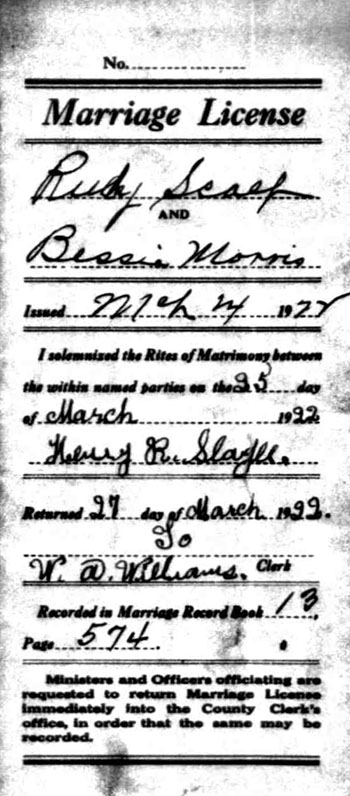 No.
Marriage License
Rudy Scalf
AND
Bessie Morris
Issued Mch 24 1922
I solemnized the Rites of Matrimony between
the within named parties on the 25 day
of March 1922
Henry R. Slagle.
Returned 27 day of March 1922.
To
W. A. Williams. Clerk
Recorded in Marriage Record Book 13,
Page 574.
Ministers and Officers officiating are
requested to return Marriage License
immediately into the County Clerk's
office, in order that the same may be
recorded.